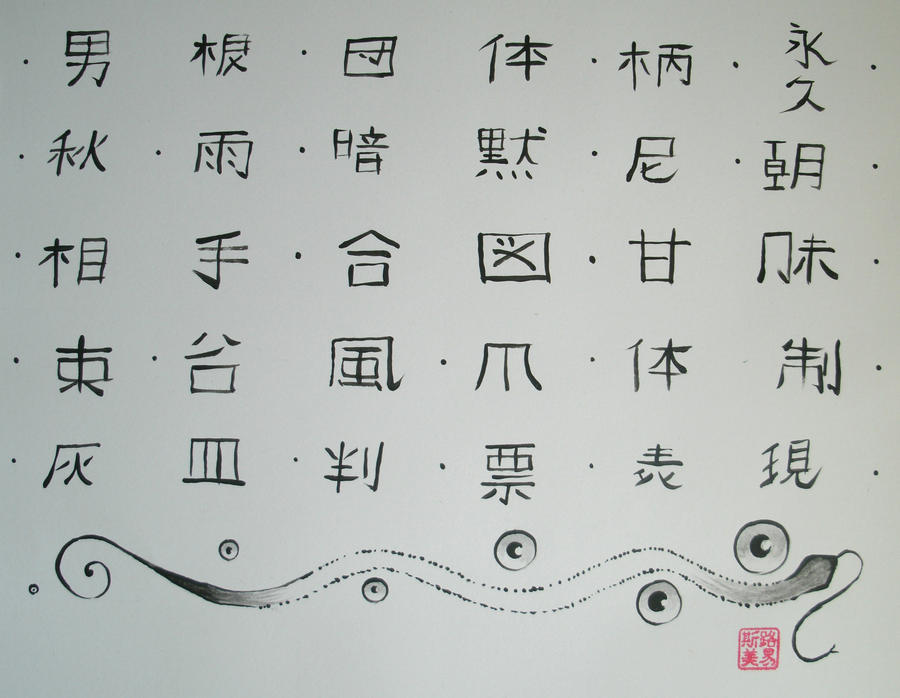 ・男根・団体・柄・永久・
・秋・雨・暗黙・尼・朝・
・相手・合図・甘味・
・束・台風・爪・体制・
・灰皿・判・票・表現・
路易
斯美